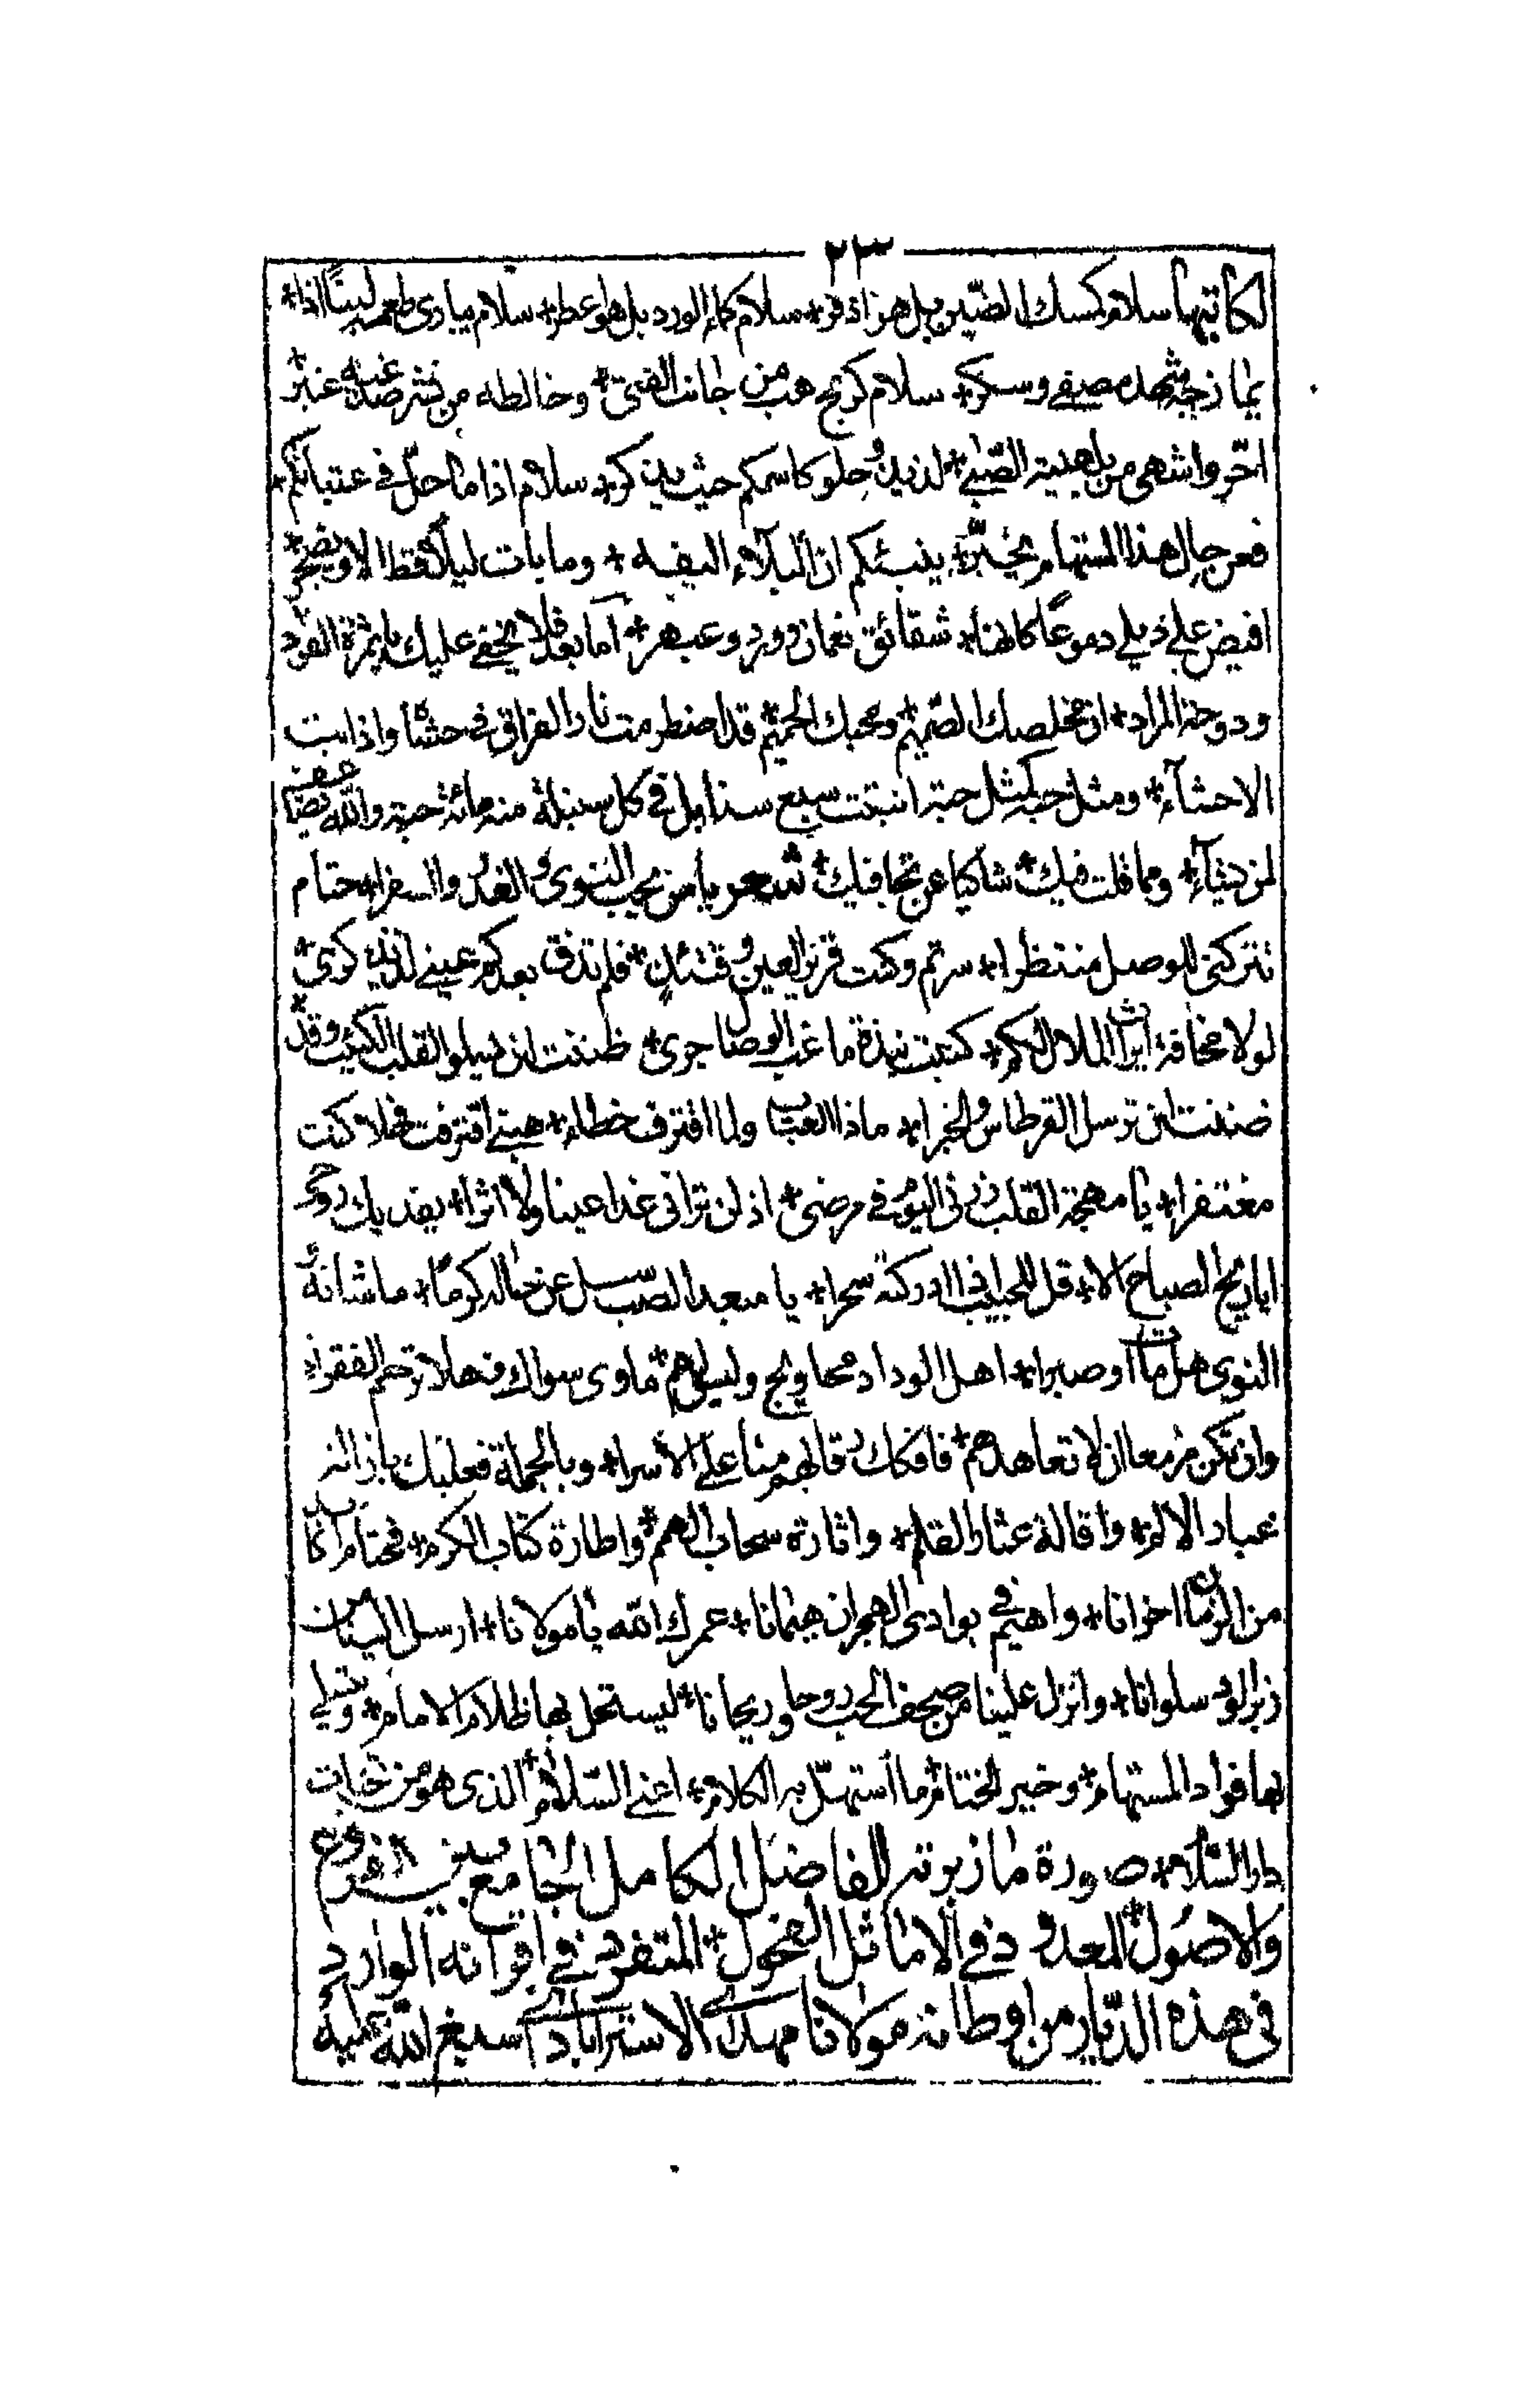 ٢٣
لكاتبها سلام كمسك الصين بل هو اذفر * سلام كماء الورد بل هو اعطر * سلام يباري طعمه لبنا اذا *
يمازجه شهد مصفى وسكر * سلام كريح هب من جانب * وخالطه من نشر عنبر *
احر واشهى من الصبى * لذيذ وحلو كاسمكم حيث يذكر * سلام اذا ما حل في عتباتكم *
فعن حال هذا المستهام يخبر * ينبئكم ان البلاء اليفه * وما بات ليلا قط الا ويضجر *
افيض على ذيلي دموعا كانها * شقائق نعمان وورد وعبهر * اما بعد فلا يخفى عليك يا ثمرة الفؤاد
ودوحة المراد * ان مخلصك الصميم * ومحبك الحميم * قد اضطرمت نار الفراق في حشاه واذابت
الاحشاء * ومثل حبه كمثل حبة انبتت سبع سنابل في كل سنبلة منه مائة حبة والله يضاعف
لمن يشاء * ومما قلت فيك * شاكيا عن تجافيك * شعر يا من يحب النوى والغدر والسفرا * حتام
تتركني للوصل منتظرا * سرتم وكنت قرير العين وقتئذ * فلم تذق بعدكم عيني لذيذ كرى *
لولا مخافة ايراث الملال لكم * كتبت نبذة ما غب الوصال جرى * ظننت ان يسلو القلب الكئيب وقد *
ضننت ان ترسل القرطاس والخبرا * ماذا العتاب ولما اقترف خطأ * هبني اقترفت فهلا كنت
مغتفرا * يا مهجة القلب زرني اليوم في مرضي * اذ لن تراني غدا عينا ولا اثرا * يفديك روحي
ايا ريح الصباح الا * قل للحبيب اذا ادركته سحرا * يا مبعد الصب سل عن حاله كرما * ما شانه
النوى هل مات او صبرا * اهل الوداد محاويج وليس لهم * ماوى سواك فهلا ترحم الفقراء
وان تكن مزمعا ان لا تعاهدهم * فافكك رقابهم منا على الاسرا * وبالجملة فعليك بازالة
عباد الالم * واقالة عثار القلم * واثارة سحاب الهمم * واطارة كتاب الكرم * فحتام اكابد
من الزمان اخوانا * واهيم في بوادي الهجران هيمانا * عمرك الله يا مولانا * ارسل الينا من
زبر الود سلوانا * وانزل علينا من صحف الحب روحا وريحانا * ليستحل بها ظلام * ويتسلى
بها فواد المستهام * وخير الختام ما استهل به الكلام * اعني السلام * الذي هو من تحيات
دار السلام * صورة ما زبرته للفاضل الكامل الجامع بين الفروع
والاصول * المعدود في الاماثل الفحول * المتفرد في اقرانه الوارد
في هذه الديار من اوطانه مولانا مهدي الاسترابادي اسبغ الله عليه